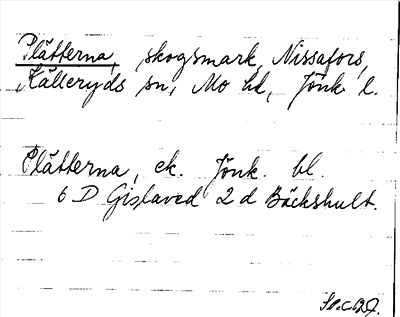 Plätterna, skogsmark, Nissafors,
Källeryds sn, Mo hd, Jönk l.
Plätterna, ek. Jönk. bl.
6 D Gislaved 2 d Bäckshult.